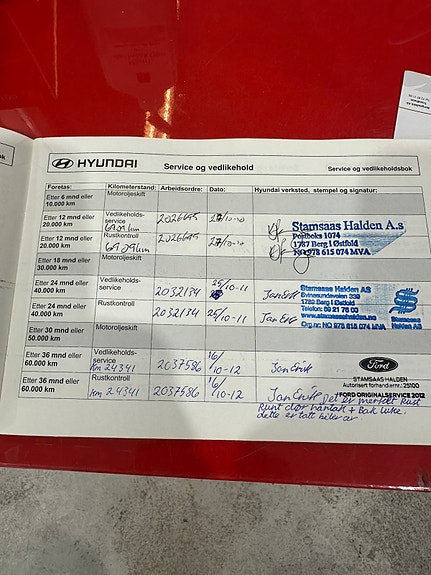 HYUNDAI
Service og vedlikehold
Service og vedlikeholdsbok
Foretas: Kilometerstand: Arbeidsordre: Dato: Hyundai verksted, stempel og signatur:
Etter 6 mnd eller 10.000 km Motoroljeskift
Etter 12 mnd eller 20.000 km Vedlikeholds-service 6929km 2026695 27/10-10
Etter 12 mnd eller 20.000 km Rustkontroll 6929km 2026695 27/10-10
Stamsaas Halden A.s
Postboks 1074
1787 Berg I Østfold
NO 978 615 074 MVA
Etter 18 mnd eller 30.000 km Motoroljeskift
Etter 24 mnd eller 40.000 km Vedlikeholds-service 2032134 25/10-11 Jan Erik
Etter 24 mnd eller 40.000 km Rustkontroll 2032134 25/10-11 Jan Erik
Stamsaas Halden AS
Svinesundveien 339
1789 Berg i Østfold
Telefon: 69 21 78 00
www.stamsaashalden.no
Org.nr: NO 978 615 074 MVA
Stamsaas
Halden AS
Etter 30 mnd eller 50.000 km Motoroljeskift
Etter 36 mnd eller 60.000 km Vedlikeholds-service Km 24341 2037586 16/10-12 Jan Erik
Etter 36 mnd eller 60.000 km Rustkontroll Km 24341 2037586 16/10-12 Jan Erik
Ford
STAMSAAS HALDEN
Autorisert forhandlernr.: 25100
FORD ORIGINALSERVICE 2012
Det er merket Rust
Rundt dør håntak + Bak luke.
dette er tatt bilder av